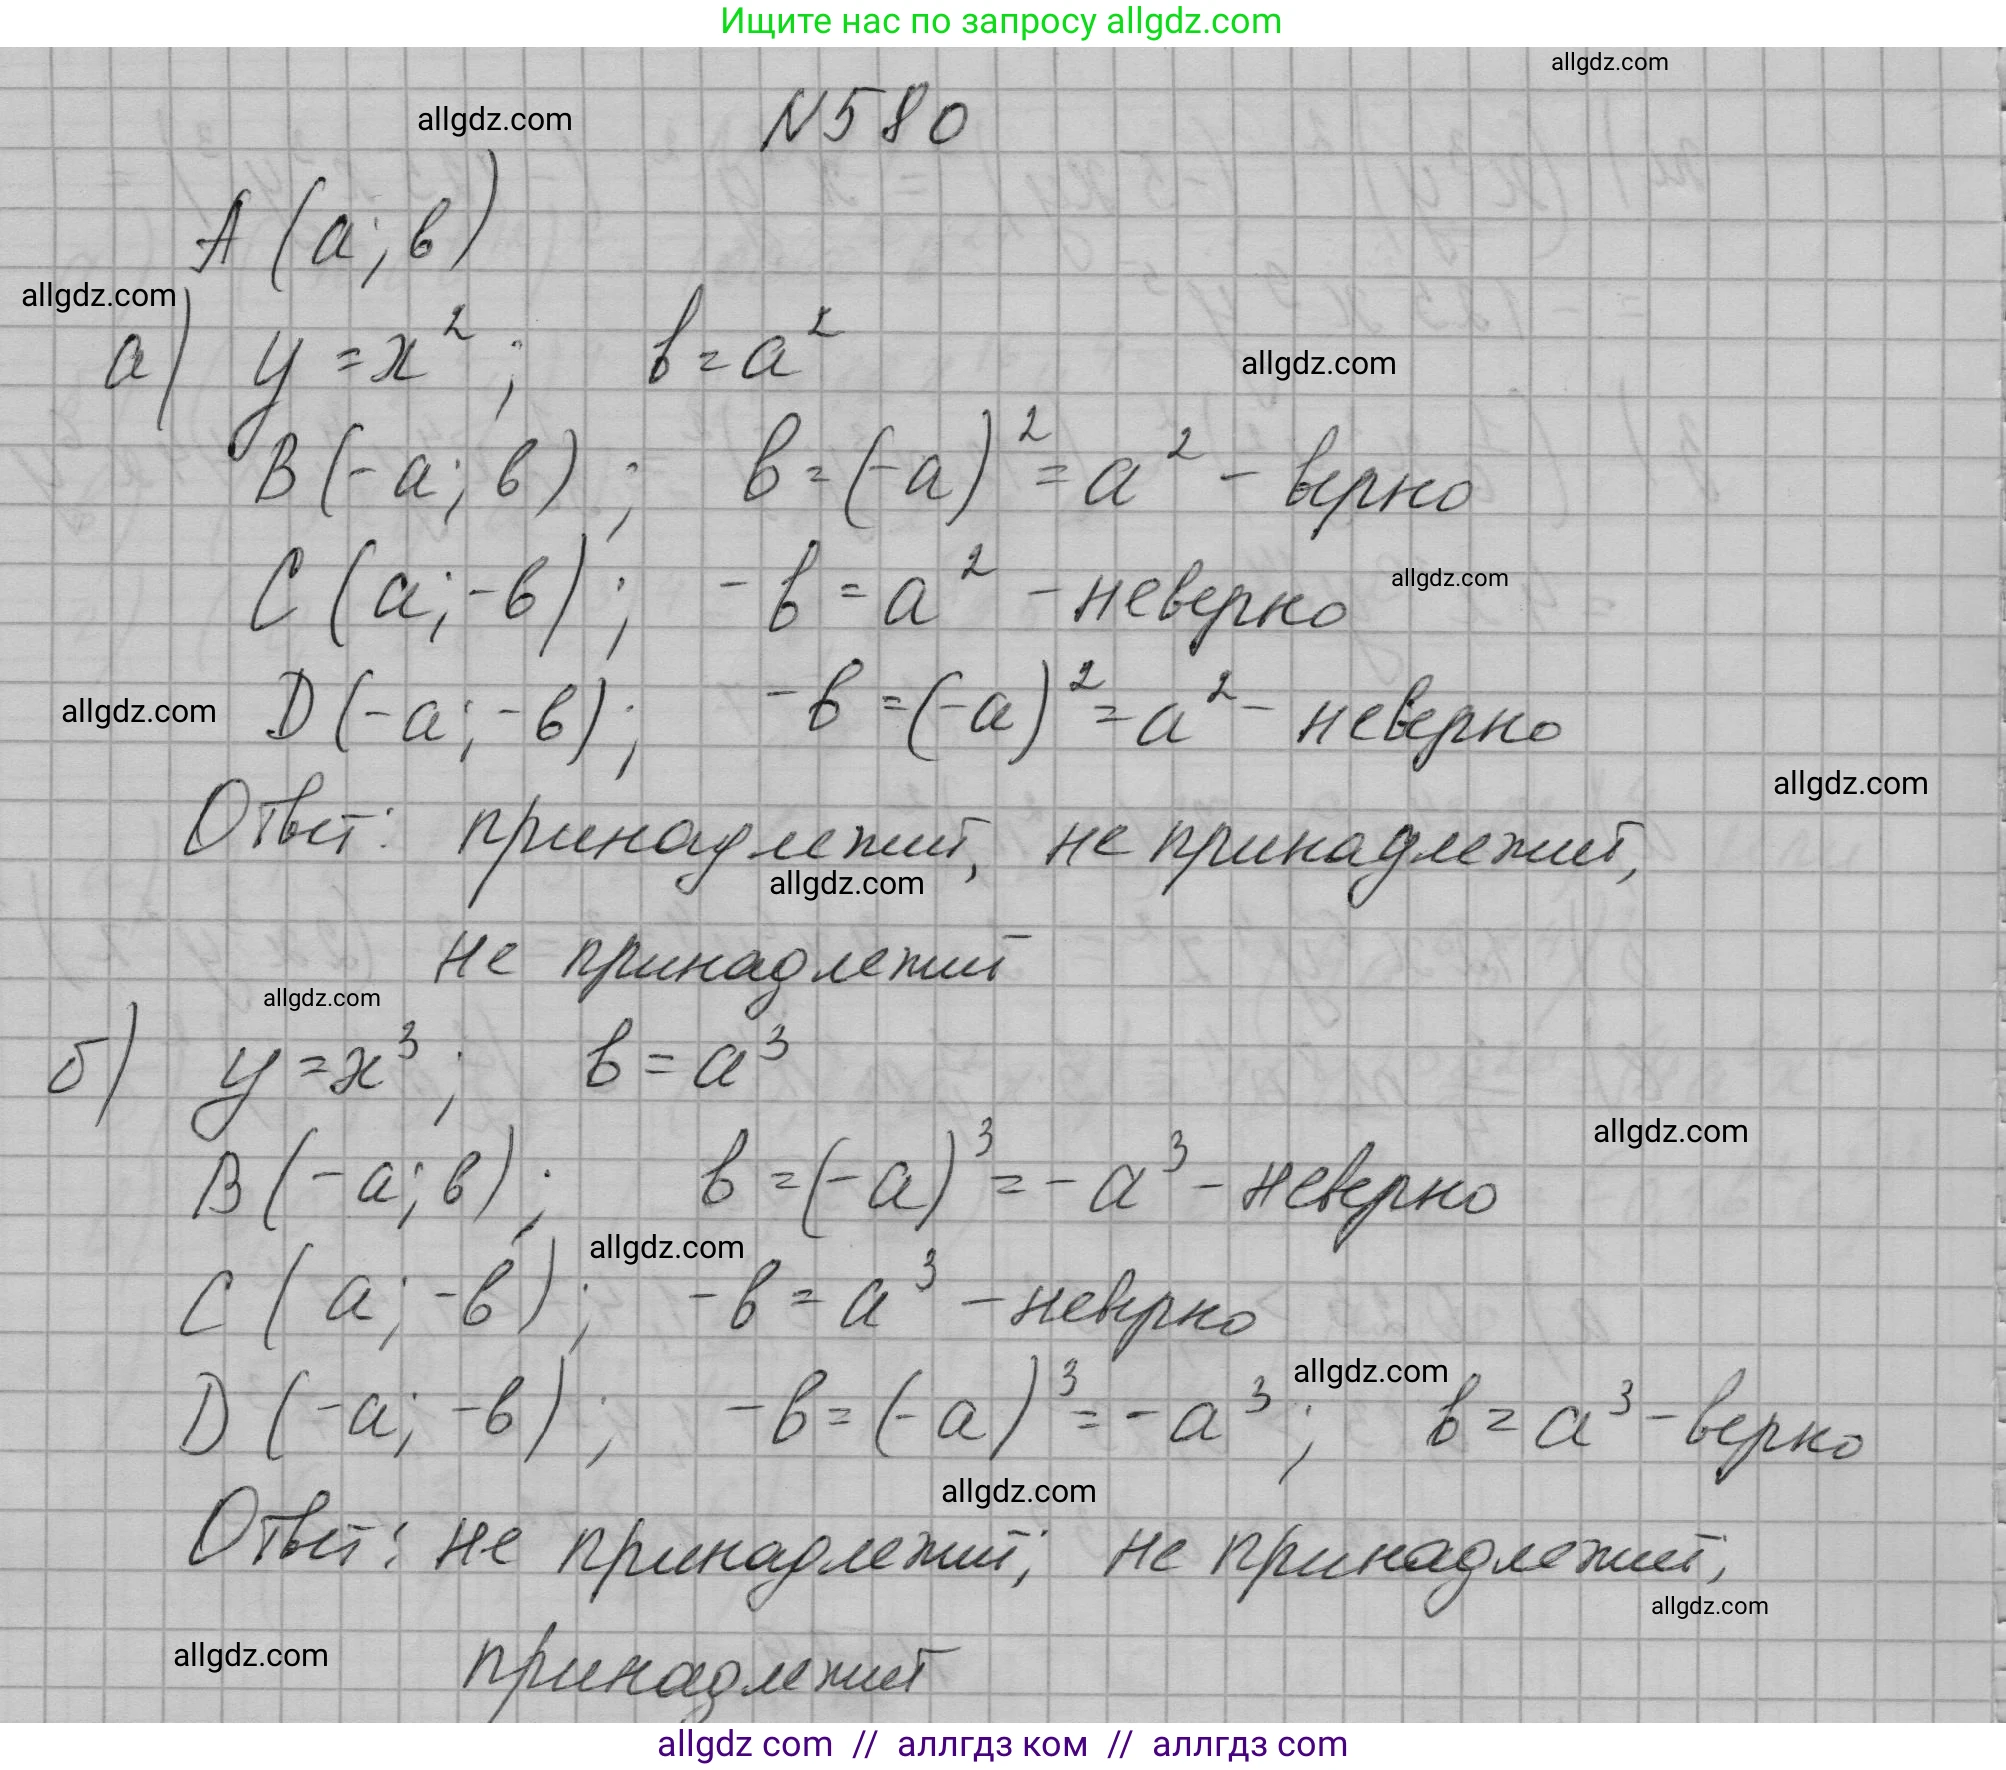 Ищите нас по запросу allgdz.com
allgdz.com
allgdz.com
N580
A (a; в)
allgdz.com
а) y = x²; в = a²
allgdz.com
B (-a; в); в = (-a)² = a² - верно
C (a; -в); -в = a² - неверно
allgdz.com
D (-a; -в); -в = (-a)² = a² - неверно
allgdz.com
allgdz.com
Ответ: принадлежит, не принадлежит,
allgdz.com
не принадлежит
allgdz.com
б) y = x³; в = a³
allgdz.com
B (-a; в); в = (-a)³ = -a³ - неверно
allgdz.com
C (a; -в); -в = a³ - неверно
allgdz.com
D (-a; -в); -в = (-a)³ = -a³; в = a³ - верно
allgdz.com
Ответ: не принадлежит; не принадлежит;
allgdz.com
allgdz.com
принадлежит
allgdz com // аллгдз ком // аллгдз com